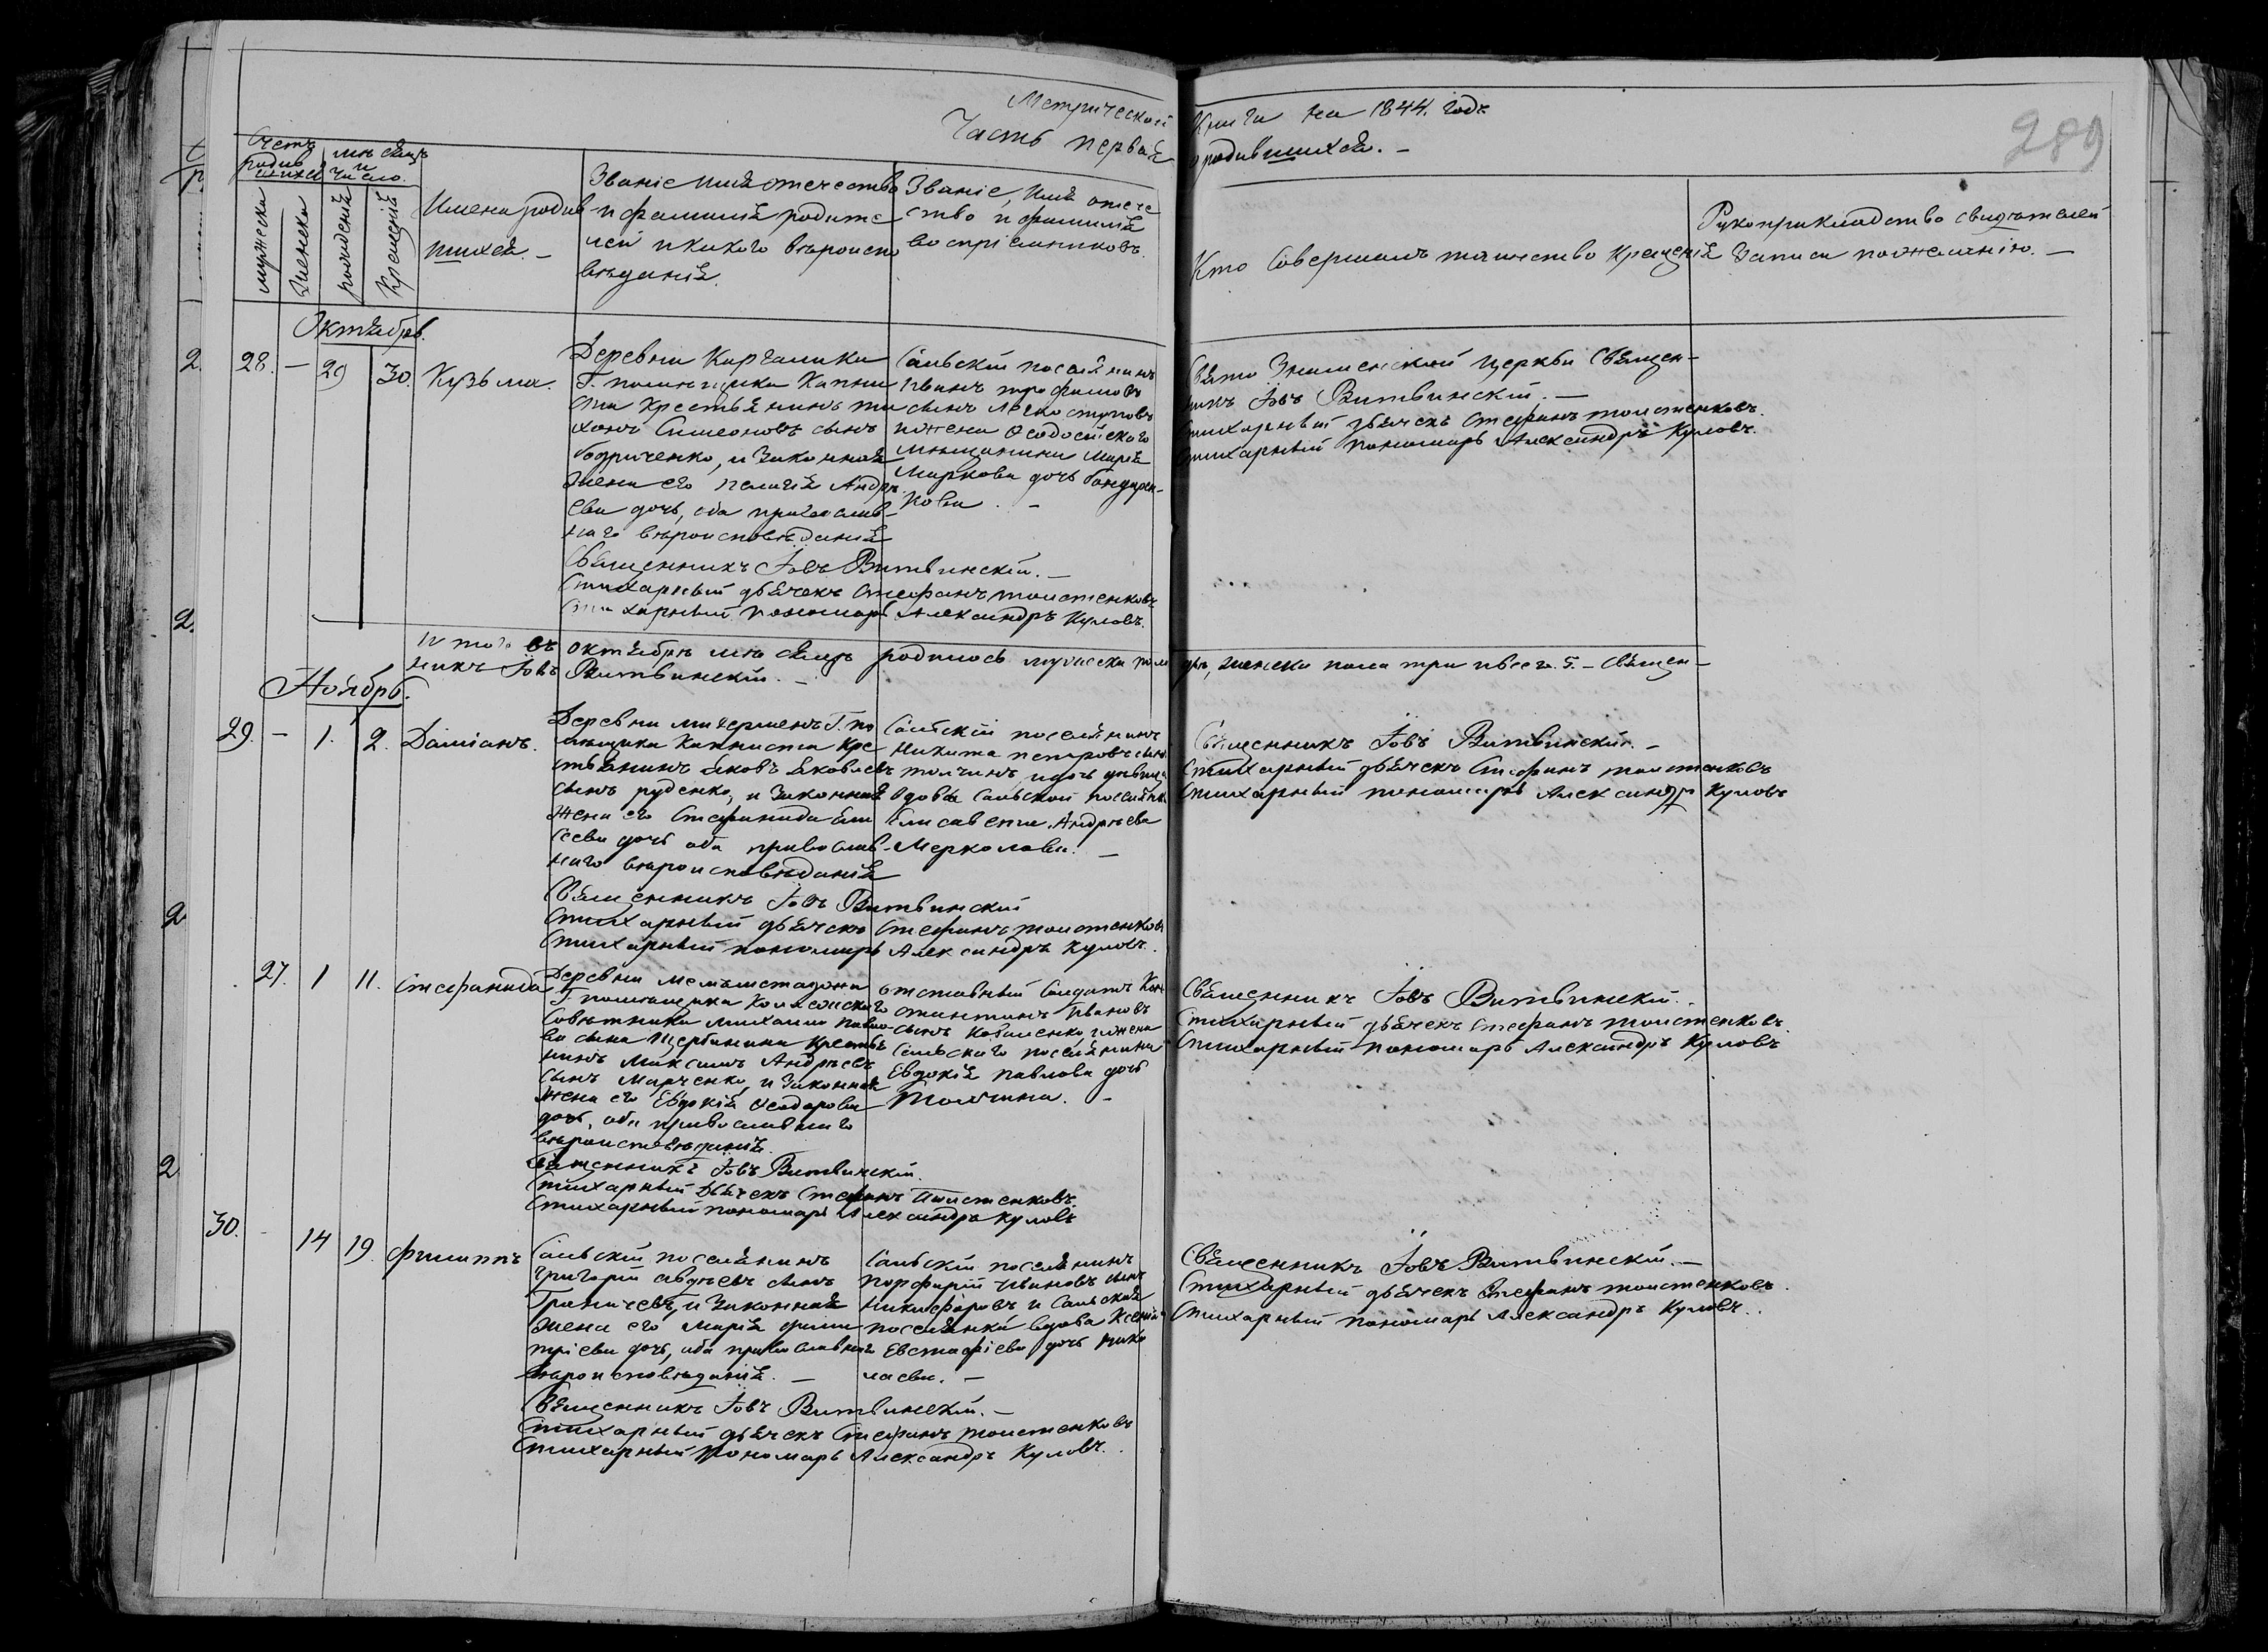 Метрической Книги на 1844. годъ
Часть первая о родившихся. –
289
Счетъ родившихся
мѣсяцъ и число.
мужеска
женска
рожденія
Крещенія
Имена родив-
шихся. –
Званіе имя отечество
и фамилія родите
лей и какого вѣроиспо
вѣданія.
Званіе, имя отече
ство и фамилія
воспріемниковъ.
Кто Совершалъ таинство Крещенія
Рукоприкладство свидѣтелей
Записи по желанію. –
Октябрь.
28. – 29 30. Кузьма.
Деревни Каргалика
Г. помѣщика Капни
ста Крестьянинъ ти
хонъ Симеоновъ сынъ
бодриченко, и Законная
жена его пелагія Андрѣ
ева дочь, оба православ-
наго вѣроисповѣданія
Священникъ Іовъ Витвинскій. –
Стихарный дьячекъ Стефанъ толстенковъ
Стихарный пономарь Александръ Куловъ.
Сальскій поселянинъ
Иванъ трофимовъ
сынъ легкоступовъ
и жена Ѳеодосійскаго
Мѣщанина Марія
Маркова дочь бондарен-
кова. –
Свято Знаменской церкви Священ-
никъ Іовъ Витвинскій. –
Стихарный дьячекъ Стефанъ толстенковъ.
Стихарный пономарь Александръ Куловъ.
Итого въ октябрѣ мѣсяцѣ родилось мужеска пола два, женска пола три и всего 5. – Священ-
никъ Іовъ Витвинскій. –
Ноябрь.
29. – 1. 2. Даміанъ.
Деревни Г. по
мѣщика Капниста Кре
стьянинъ яковъ яковлевъ
сынъ руденко, и Законная
жена его Стефанида Ели
сеева дочь оба православ-
наго вѣроисповѣданія
Священникъ Іовъ Витвинскій
Стихарный дьячекъ Стефанъ толстенковъ
Стихарный пономарь Александръ Куловъ.
Сальскій поселянинъ
Никита петровъ сынъ
толчинъ, и дочь дѣвица
Вдовы Сальской поселянки
Елисавета Андрѣева
Мерколова. –
Священникъ Іовъ Витвинскій. –
Стихарный дьячекъ Стефанъ толстенковъ
Стихарный пономарь Александръ Куловъ
27. 1 11. Стефанида
Деревни
Г. помѣщика Колежскаго
Совѣтника михаила павло-
ва сына Щербинина Крестья
нинъ Максимъ Андрѣевъ
сынъ Марченко, и Законная
жена его Евдокія Ѳеодорова
дочь, оба православнаго
вѣроисповѣданія.
Священникъ Іовъ Витвинскій.
Стихарный Дьячекъ Стефанъ толстенковъ.
Стихарный пономарь Александръ Куловъ
отставный Солдатъ Кон-
стантинъ Ивановъ
сынъ Коваленко, и жена
Сальскаго поселянина
Евдокія павлова дочь
Толчина. –
Священникъ Іовъ Витвинскій.
Стихарный дьячекъ Стефанъ толстенковъ.
Стихарный пономарь Александръ Куловъ
30. – 14 19. филиппъ
Сальскій поселянинъ
григорій авдѣевъ сынъ
Граничевъ, и Законная
жена его Марія дими
тріева дочь, оба православнаго
вѣроисповѣданія. –
Священникъ Іовъ Витвинскій. –
Стихарный дьячекъ Стефанъ толстенковъ
Стихарный пономарь Александръ Куловъ.
Сальскій поселянинъ
порфирій ивановъ сынъ
Никифоровъ и Сальская
поселянка вдова Ксенія
Евстафіева дочь Нико
лаева. –
Священникъ Іовъ Витвинскій. –
Стихарный дьячекъ Стефанъ толстенковъ.
Стихарный пономарь Александръ Куловъ.